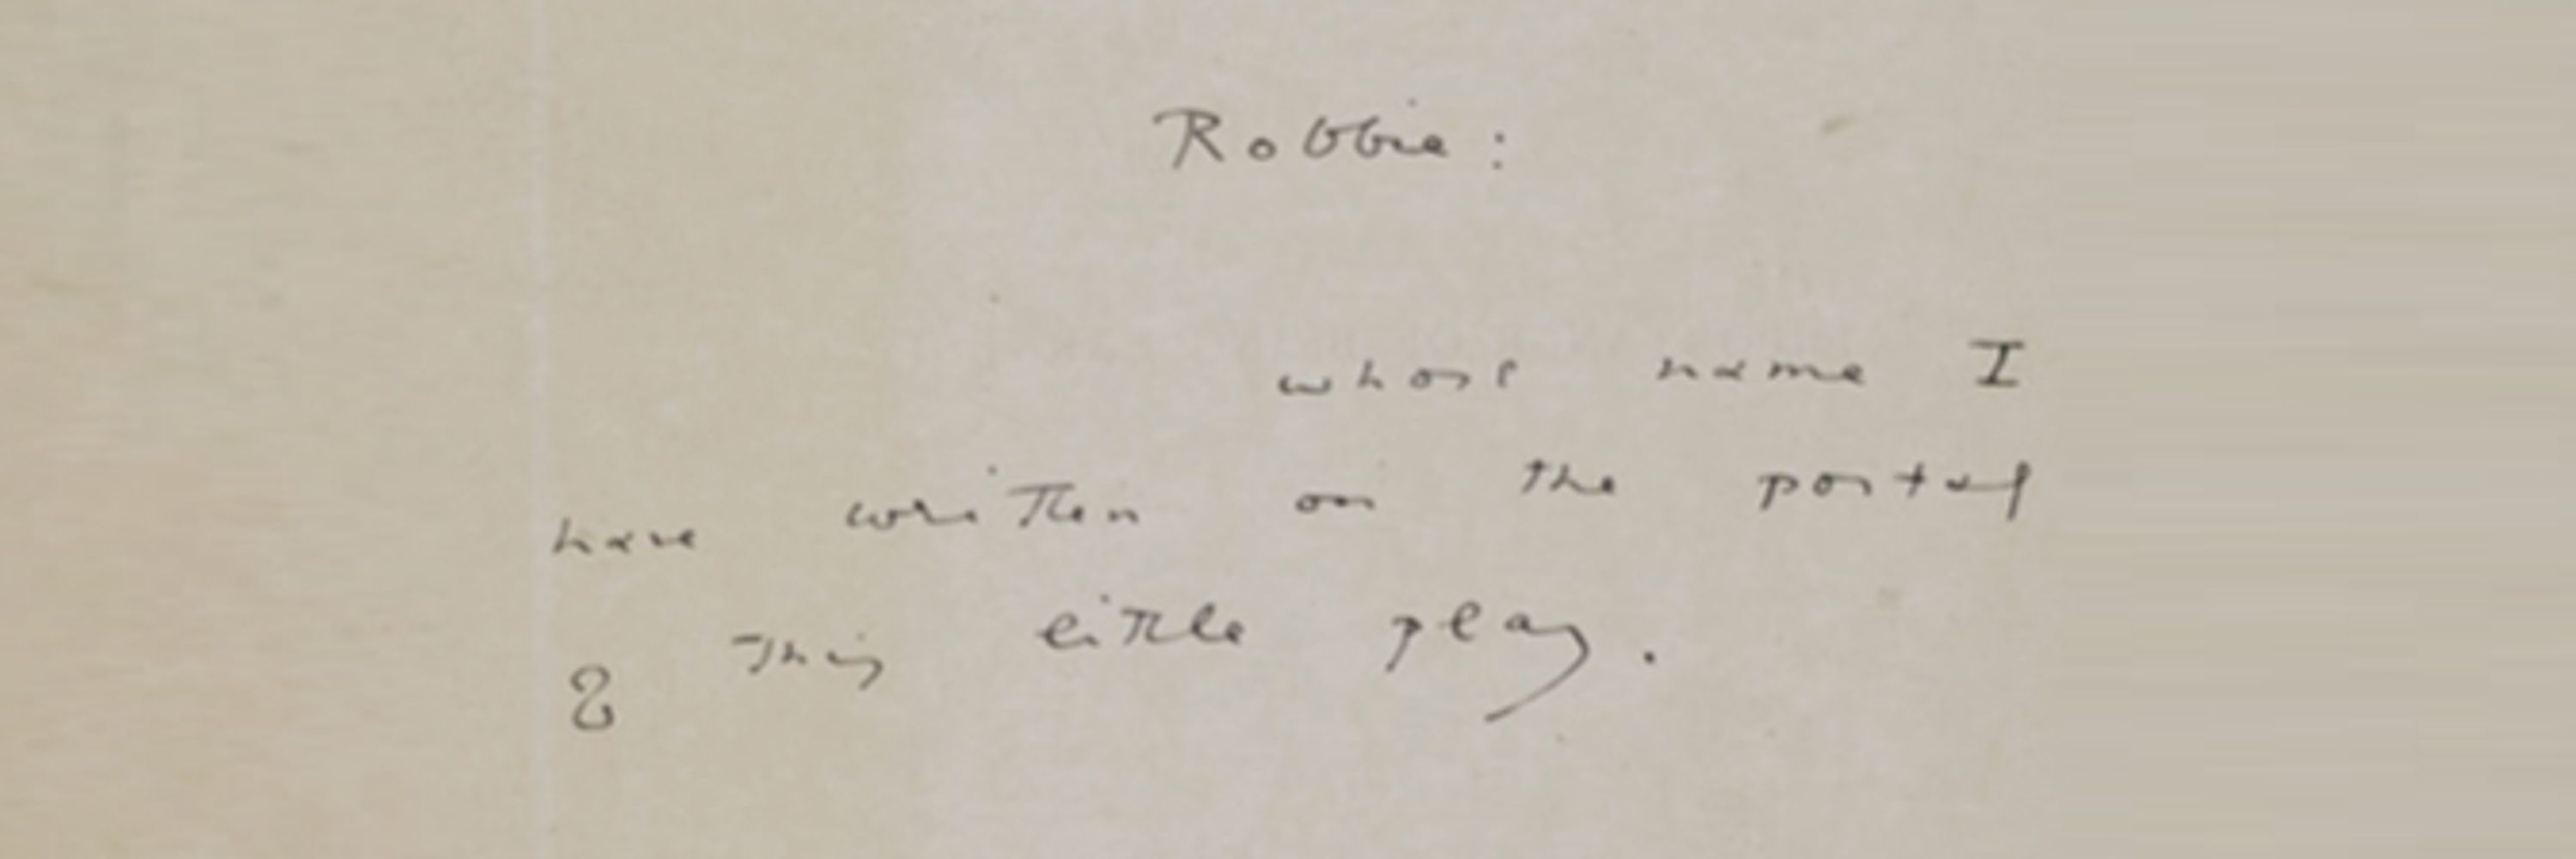 Robbie:
whose name I
have written on the portal
of this little play.